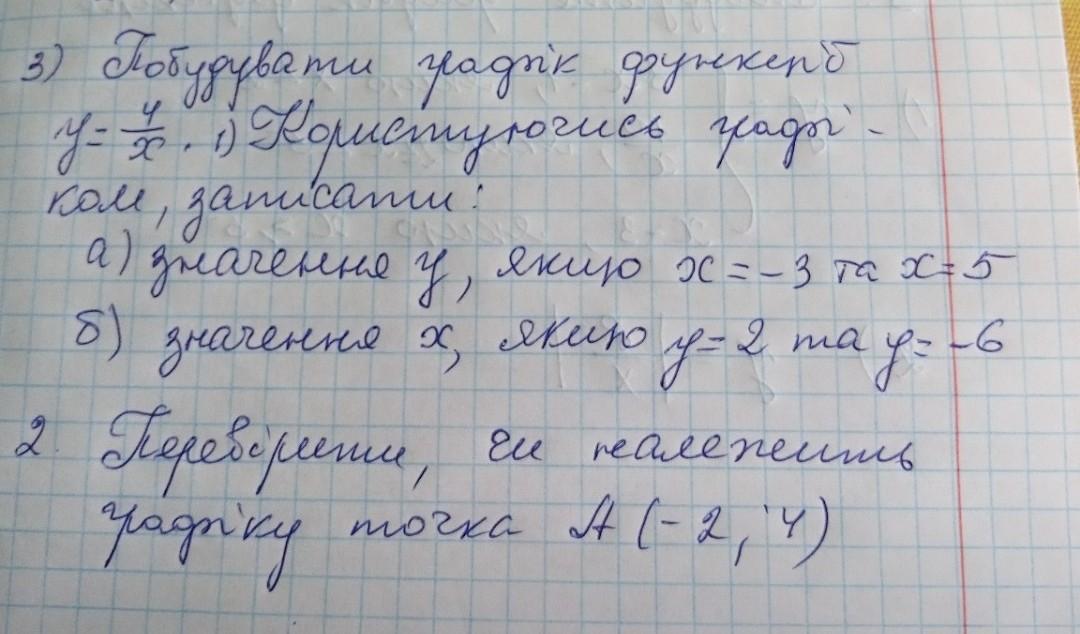 3) Побудувати графік функції
y = 4/x . 1) Користуючись графі-
ком, записати:
а) значення y, якщо x = -3 та x = 5
б) значення x, якщо y = 2 та y = -6
2. Перевірити, чи належить
графіку точка A (-2; 4)